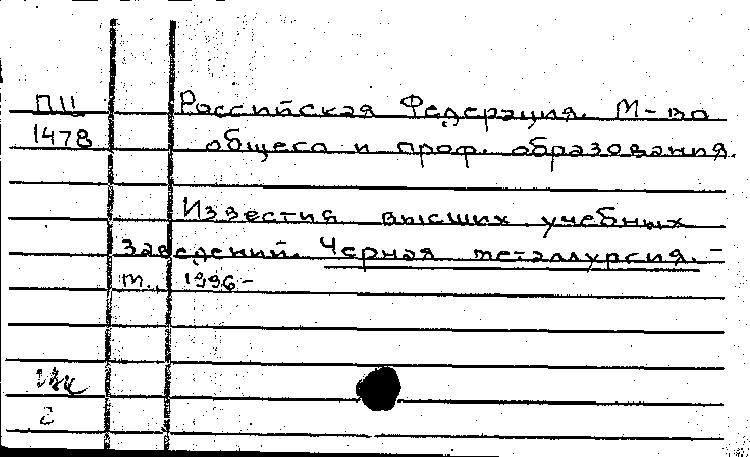 ПЦ Российская Федерация. М-во
1478 общего и проф. образования.
Известия высших учебных
заведений. Черная металлургия. –
М., 1996 –